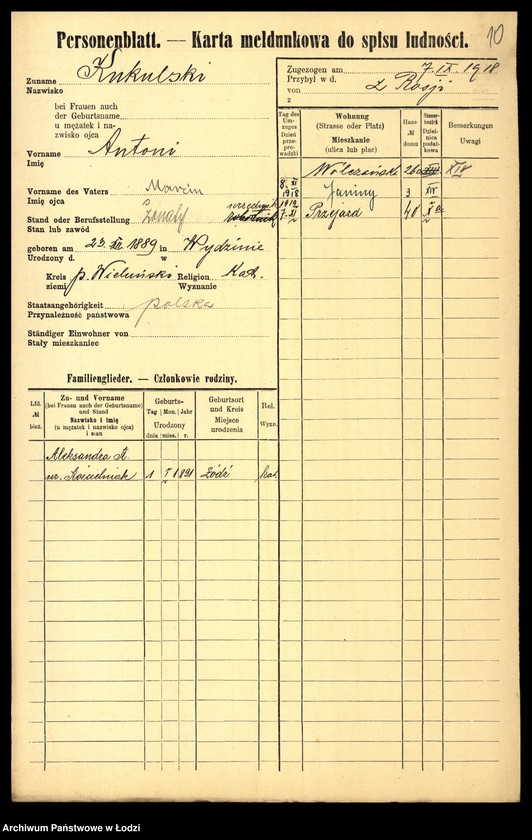 10
Personenblatt. — Karta meldunkowa do spisu ludności.
Zuname Kukulski
Nazwisko
bei Frauen auch
der Geburtsname
u mężatek i na-
zwisko ojca
Vorname Antoni
Imię
Vorname des Vaters Marcin
Imię ojca
Stand oder Berufsstellung żonaty urzędnik robotnik
Stan lub zawód
geboren am 23. XII 1889 in Wydzinie
Urodzony d. w
Kreis p. Wieluński Religion Kat.
ziemi Wyznanie
Staatsangehörigkeit polska
Przynależność państwowa
Ständiger Einwohner von
Stały mieszkaniec
Zugezogen am 7. IX. 1918
Przybył w d.
von z Rosji
z
Tag des Um-zuges Dzień prze-prowadzki
Wohnung (Strasse oder Platz) Mieszkanie (ulica lub plac)
Haus- № domu
Steuer-bezirk Dzielnica podat-kowa
Bemerkungen Uwagi
Wólczańska XIV
8. XI 1918 Janiny 3 XIV
1919 7. XI Przejazd 40 X
Familienglieder. — Członkowie rodziny.
Lfd. № bież.
Zu- und Vorname (bei Frauen auch der Geburtsname) und Stand Nazwisko i imię (u mężatek i nazwisko ojca) i stan
Geburts- Tag Mon. Jahr Urodzony dnia mies. r.
Geburtsort und Kreis Miejsce urodzenia
Rel. Wyzn.
Aleksandra
ur. Kościelniak 1 1891 Łódź kat.
Archiwum Państwowe w Łodzi